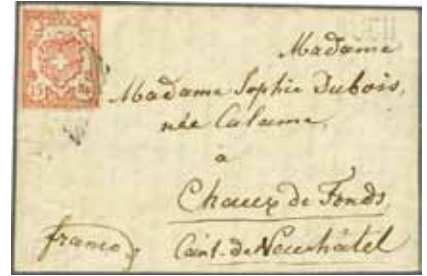 15
Madame
Madame Sophie Dubois,
née Calame,
à
Chaux de Fonds,
franco,
Cant. de Neuchâtel